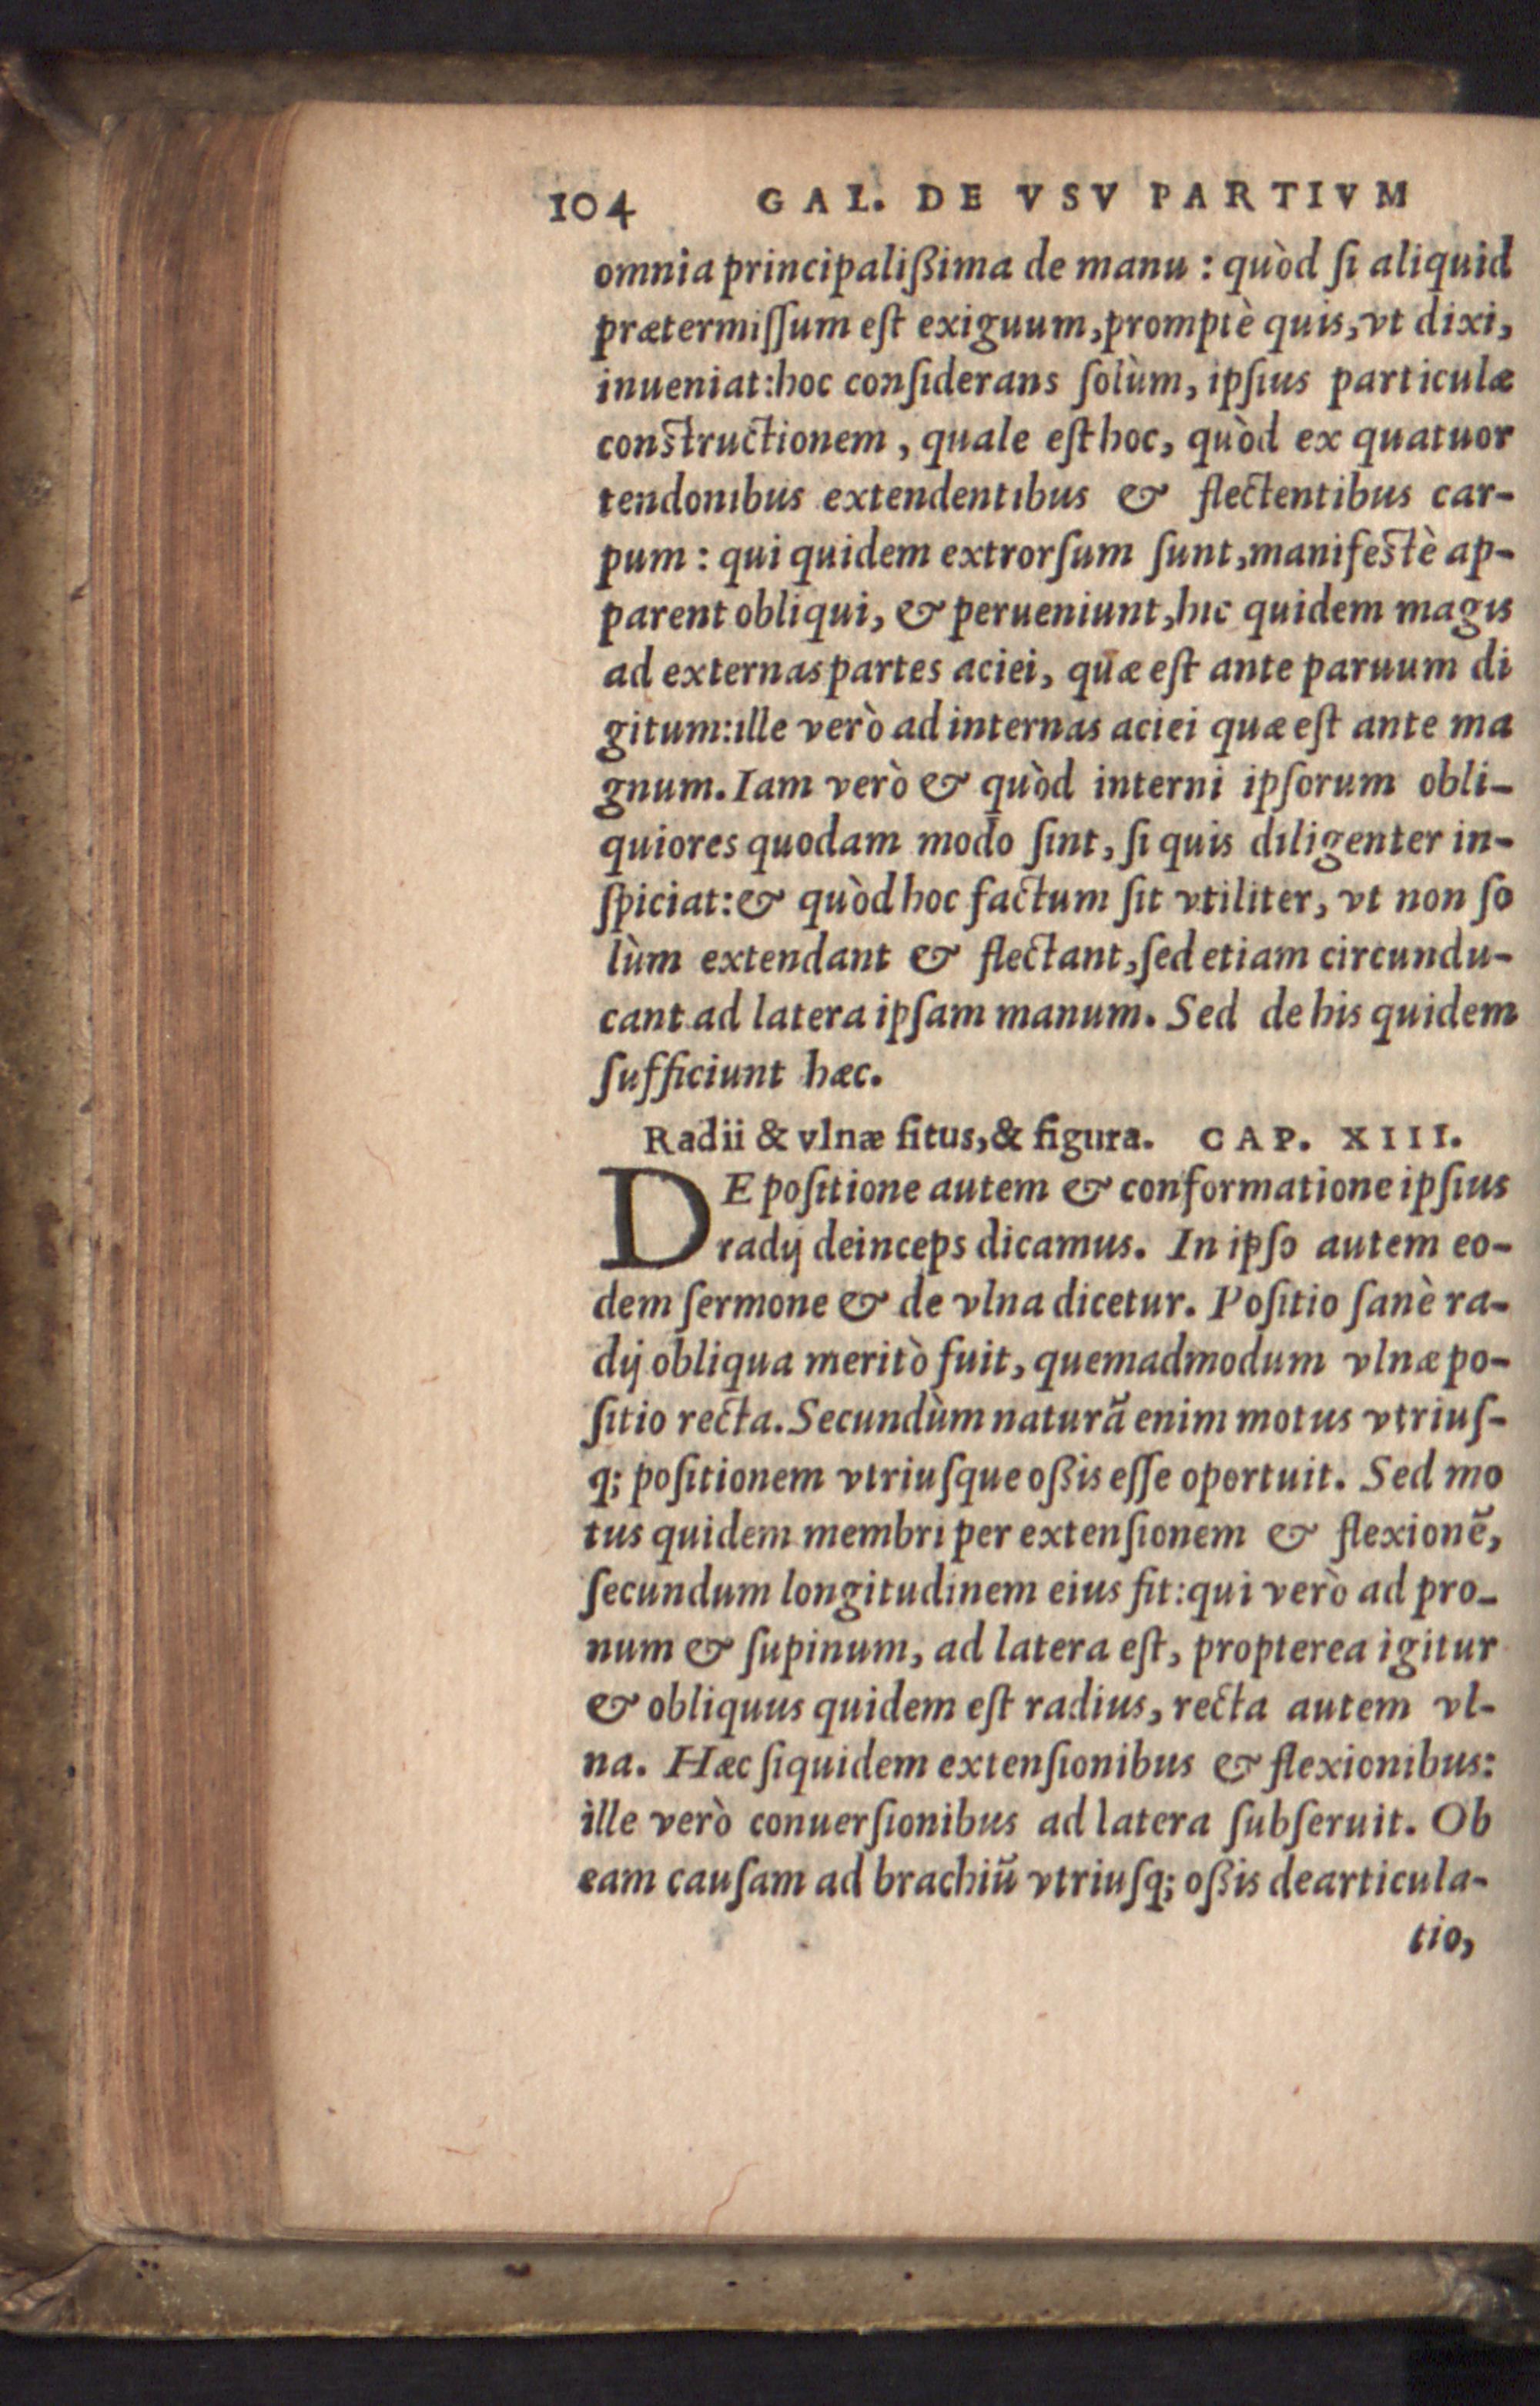 104 GAL. DE VSV PARTIVM
omnia principalißima de manu : quòd ſi aliquid
prætermiſſum eſt exiguum, promptè quis, vt dixi,
inueniat: hoc conſiderans ſolùm, ipſius particulæ
conſtructionem , quale eſt hoc, quòd ex quatuor
tendonibus extendentibus & flectentibus car-
pum : qui quidem extrorſum ſunt, manifeſtè ap-
parent obliqui, & perueniunt, hic quidem magis
ad externas partes aciei, quæ eſt ante paruum di
gitum: ille verò ad internas aciei quæ eſt ante ma
gnum. Iam verò & quòd interni ipſorum obli-
quiores quodam modo ſint, ſi quis diligenter in-
ſpiciat: & quòd hoc factum ſit vtiliter, vt non ſo
lùm extendant & flectant, ſed etiam circundu-
cant ad latera ipſam manum. Sed de his quidem
ſufficiunt hæc.
Radii & vlnæ ſitus, & figura. CAP. XIII.
DE poſitione autem & conformatione ipſius
radij deinceps dicamus. In ipſo autem eo-
dem ſermone & de vlna dicetur. Poſitio ſanè ra-
dij obliqua meritò fuit, quemadmodum vlnæ po-
ſitio recta. Secundùm naturã enim motus vtriuſ-
q; poſitionem vtriuſque oßis eſſe oportuit. Sed mo
tus quidem membri per extenſionem & flexionẽ,
ſecundum longitudinem eius fit: qui verò ad pro-
num & ſupinum, ad latera eſt, propterea igitur
& obliquus quidem eſt radius, recta autem vl-
na. Hæc ſiquidem extenſionibus & flexionibus:
ille verò conuerſionibus ad latera ſubſeruit. Ob
eam cauſam ad brachiũ vtriuſq; oßis dearticula-
tio,